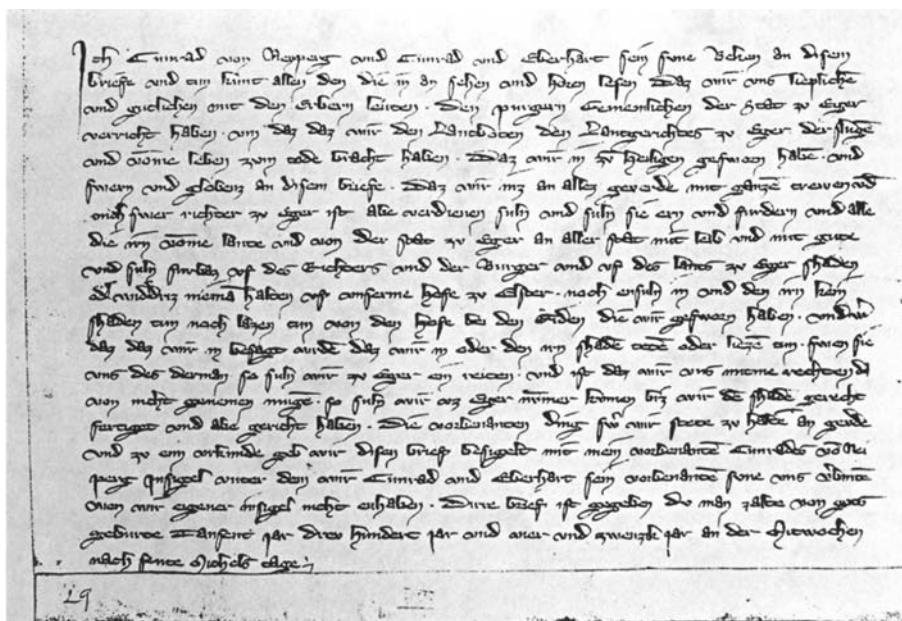 Ich Cunrad von Neyperg vnd Cunrad vnd Eberhart sein sune Veiehen an disem
briefe vnd tun kunt allen den die in an sehen vnd hören lesen Daz wir vns lieplichē
vnd gutlichen mit den Erbern leuten · Den purgern Gemenlichen der Stat zv Eger
verricht haben · vm daz daz wir den Lantboten den Lantgerichtes zv Eger der
vnd vōme leben zvm tode bracht haben · Daz wir in zv heiligen gesworn habē · vnd
swern vnd globenz an disem briefe · Daz wir inz an allez geverde mit ganzē trewen vnd
swer richter zv Eger ist abe verdienen suln vnd suln sie ern vnd furdern vnd alle
die irn vōme lante vnd von der stat zv Eger an aller stat mit leib vnd mit gute
vnd suln furbaz vf des Richters vnd der Burger vnd vf des lants zv Eger shaden
niemā halden vf vnserme hofe zv Elster · noch ensuln in vnd den irn kein
shaden tun noch lazen tun von den hofe bei den eiden die wir gesworn haben ·
daz daz wir in besagt wurdē daz wir in oder den irn shadē tetē oder liezē tun · swen sie
vns des derman so suln wir zv Eger ein reiten · vnd ist daz wir vns mitme rechten da
von niht genemen mugē · so suln wir vz Eger nimmer kōmen biz wir dē shadē gericht
fertiget vnd abe gericht haben · Die vorbenanten ding swer wir stete zv haldē an geūde
vnd zv eim vrkunde geb wir disen brief besigelt mit meim vorbenantē Cunrades vō Nei
perg Insigel vnter dem wir Cunrad vnd Eberhart sein vorbenantē sune vns v̄bintē
wen wir eigener insigel niht enhaben · Dirre brief ist gegeben do man zalte von gots
geburte Tausent jar drev hundert jar vnd vier vnd zwenzik jar an der Mitwochen
nach sente Michels tage
29